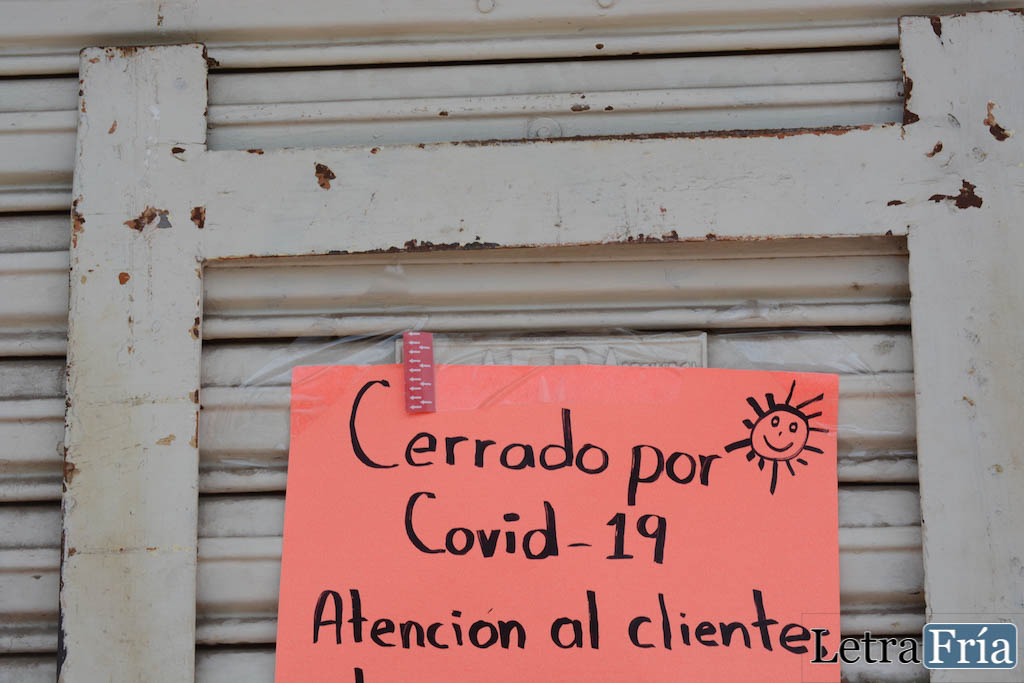 Cerrado por
Covid-19
Atención al cliente
LetraFría